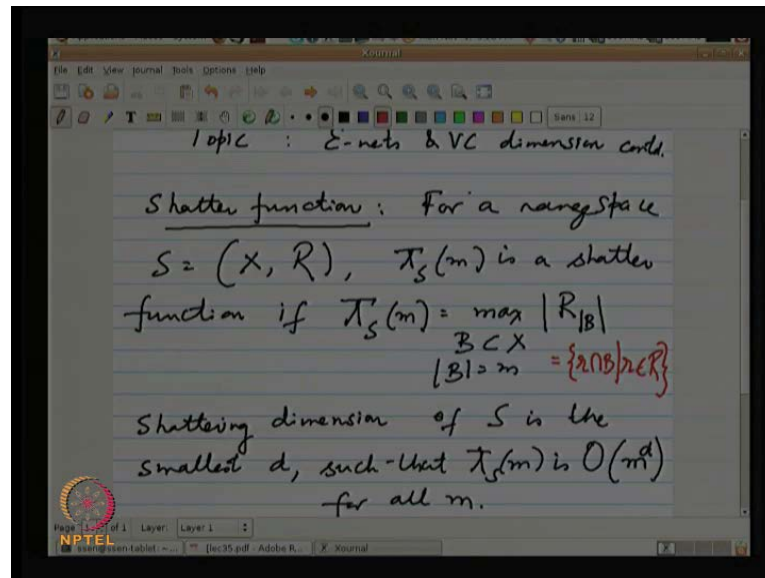 Xournal
File Edit View Journal Tools Options Help
Sans 12
Topic : ε-nets & VC dimension contd.
Shatter function : For a range space
S = (X, R), π_S(m) is a shatter
function if π_S(m) = max |R_|B|
B ⊂ X
|B| = m = {r∩B | r∈R}
Shattering dimension of S is the
smallest d, such-that π_S(m) is O(m^d)
for all m.
Page 1 of 1 Layer: Layer 1
NPTEL
ssen@ssen-tablet: ~... [lec35.pdf - Adobe R... Xournal